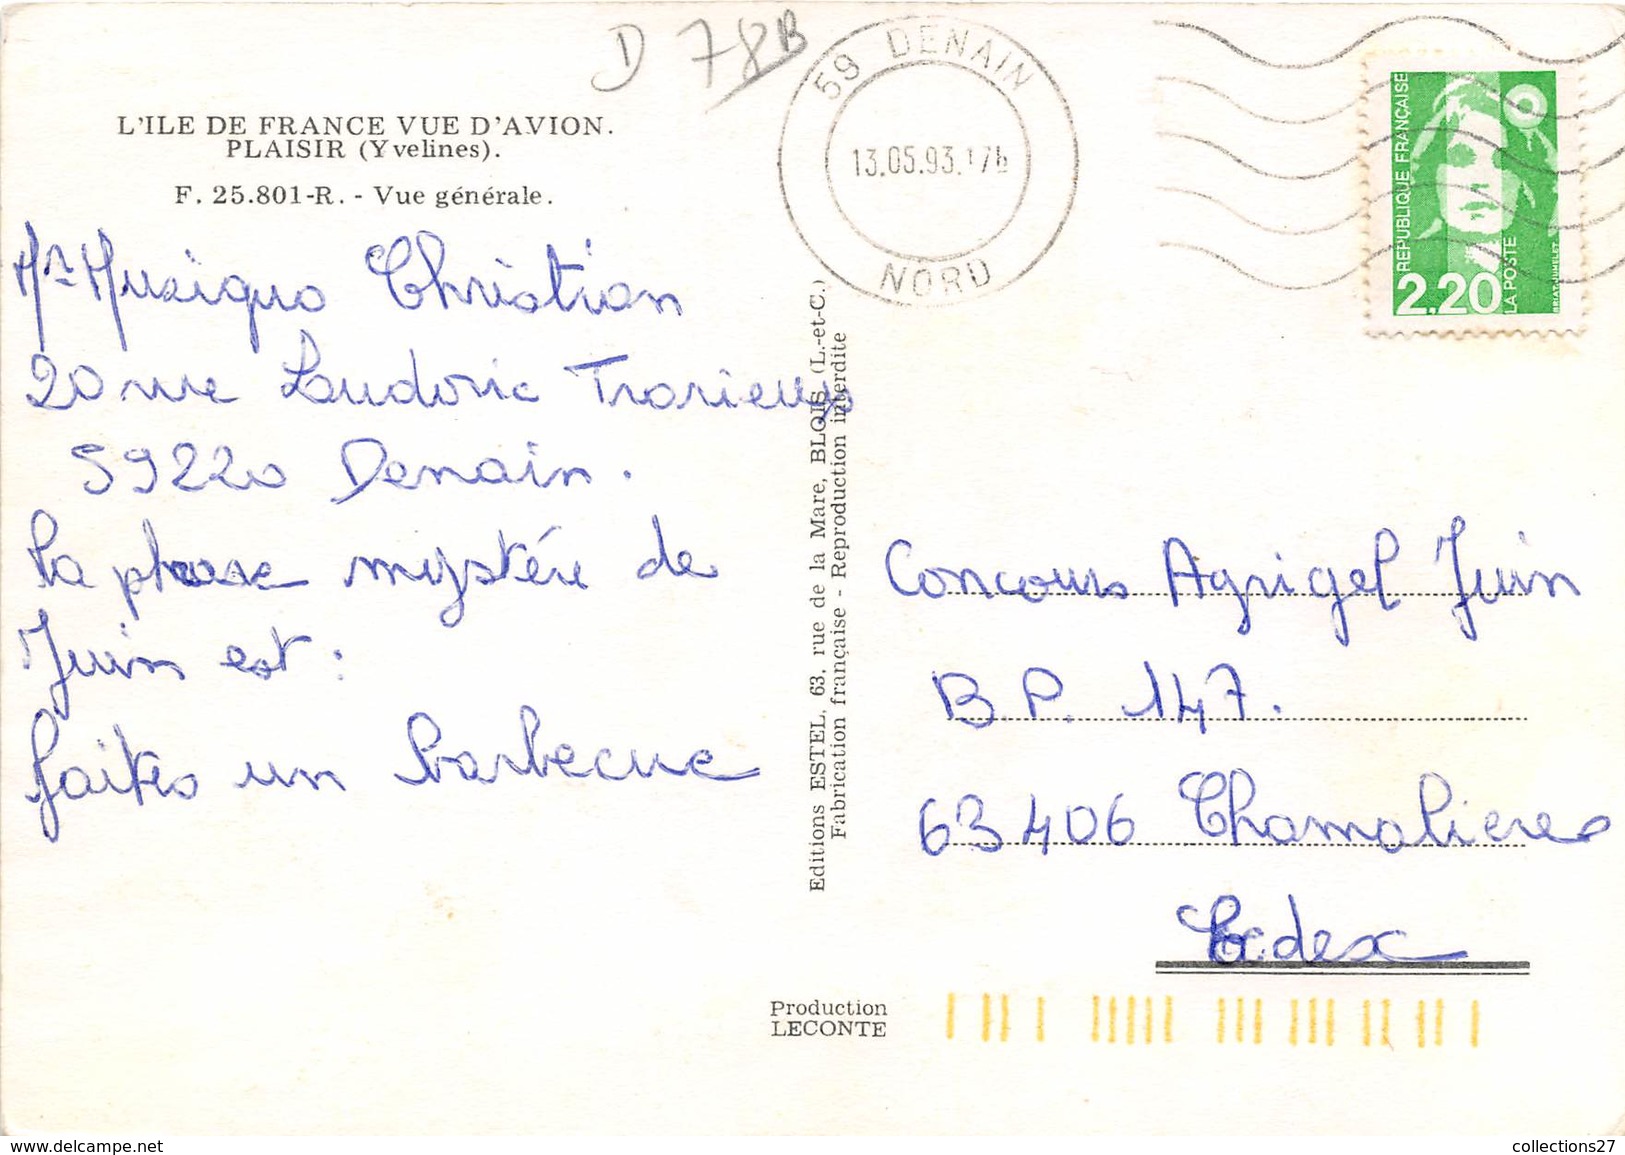 D 78B
L'ILE DE FRANCE VUE D'AVION.
PLAISIR (Yvelines).
F. 25.801-R. - Vue générale.
59 DENAIN
13.05.93.17h
NORD
REPUBLIQUE FRANÇAISE
2,20
LA POSTE
Mr Musiquo Christian
20 rue Ludovic Trarieux
59220 Denain.
La phrase mystére de
Juin est :
faites un barbecue
Editions ESTEL, 63, rue de la Mare, BLOIS (L.-et-C.)
Fabrication française - Reproduction interdite
Concours Agrigel Juin
B.P. 147.
63406 Chamalieres
Cedex
Production
LECONTE
collections27